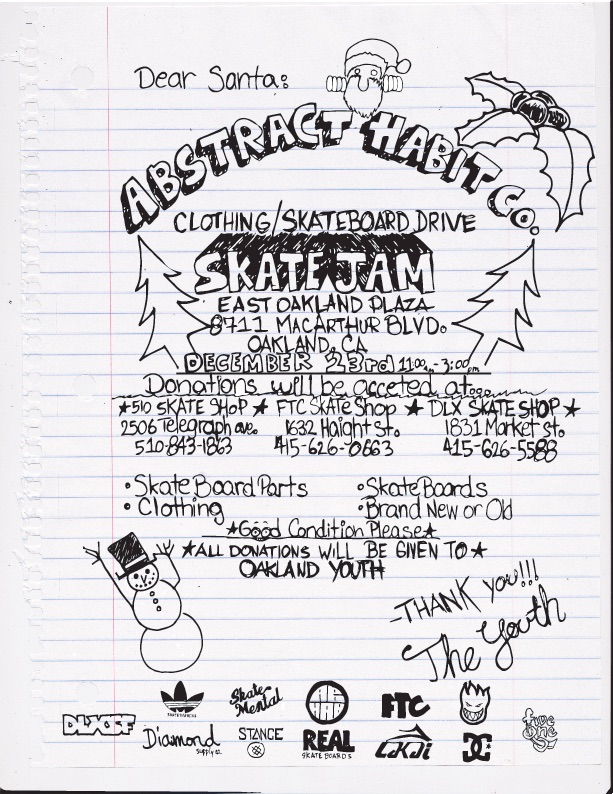 Dear Santa:
ABSTRACT HABIT CO.
CLOTHING/SKATEBOARD DRIVE
SKATE JAM
EAST OAKLAND PLAZA
8711 MACARTHUR BLVD.
OAKLAND, CA
DECEMBER 23rd 11:00am-3:00pm
Donations will be acceted at....
★510 SKATE SHOP ★ FTC SKATE Shop ★ DLX SKATE SHOP ★
2506 Telegraph ave. 1632 Haight St. 1831 Market St.
510-843-1863 415-626-0663 415-626-5588
•Skate Board Parts •Skate Boards
•Clothing •Brand New or Old
★Good Condition Please★
★ALL DONATIONS WILL BE GIVEN TO★
OAKLAND YOUTH
-THANK you!!!
The Youth
DLXSF SKATEBOARDING Skate Mental FTC
Diamond Supply co. STANCE REAL SKATEBOARDS LAKAI DC five one 0